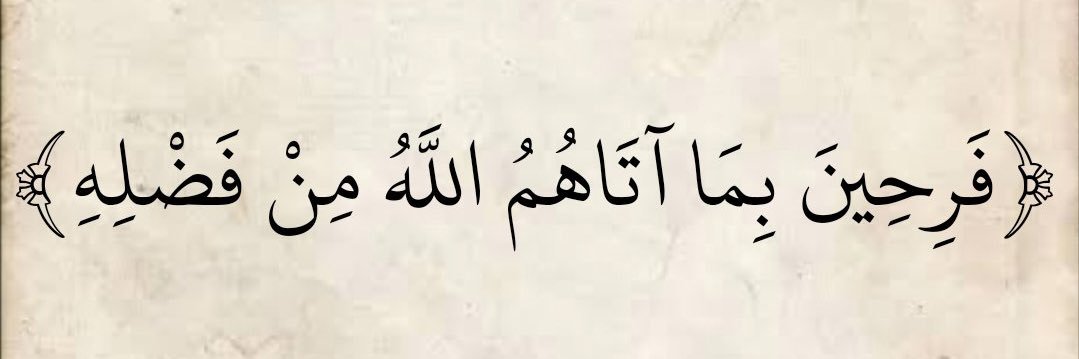 ﴿فَرِحِينَ بِمَا آتَاهُمُ اللَّهُ مِنْ فَضْلِهِ﴾